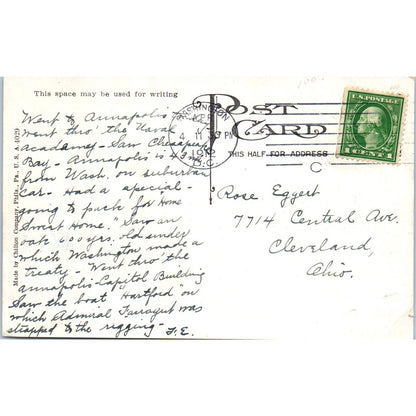 This space may be used for writing
POST CARD
THIS HALF FOR ADDRESS
WASHINGTON
4
11
1912
D.C.
PM
U.S. POSTAGE
CENT
C
Made by Chilton Company, Phila., Pa., U. S. A. 4029
Went to Annapolis
went thro' the Naval
academy - Saw Chesapeake
Bay - Annapolis is
from Wash. on suburban
car - Had a special -
going to push for Home
Sweet Home." Saw an
oak 600 yrs. old under
which Washington made a
treaty - Went thro' the
annapolis Capitol Building
Saw the boat "Hartford" on
which Admiral Farragut was
strapped to the rigging -
F.E.
Rose Eggert
7714 Central Ave.
Cleveland,
Ohio.